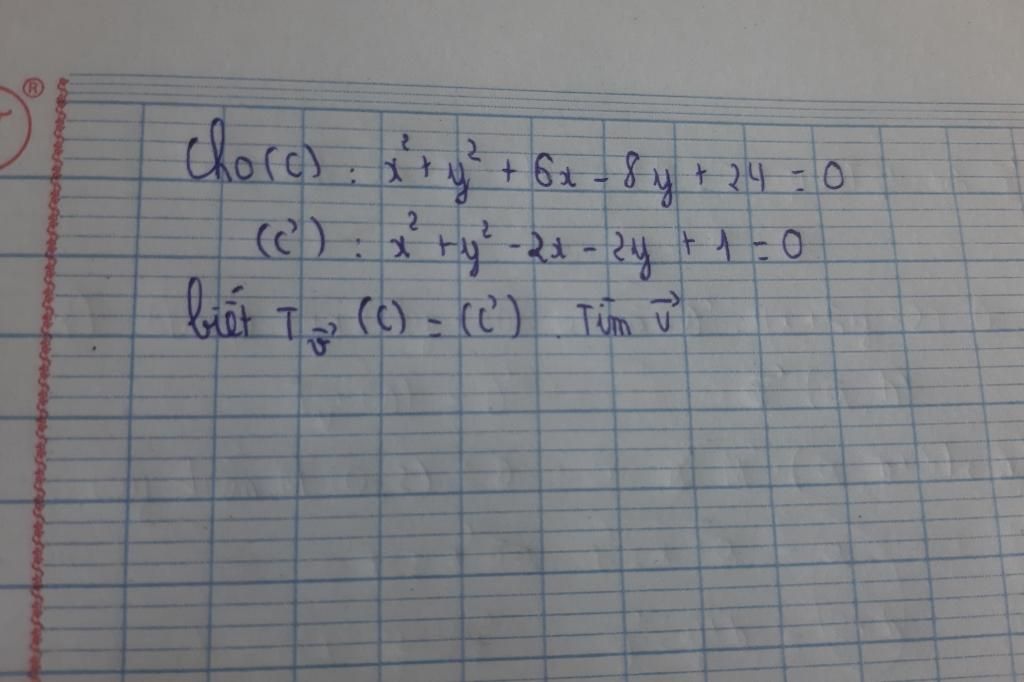 Cho (C) : x² + y² + 6x - 8y + 24 = 0
(C') : x² + y² - 2x - 2y + 1 = 0
biết T_v⃗ (C) = (C') . Tìm v⃗
®